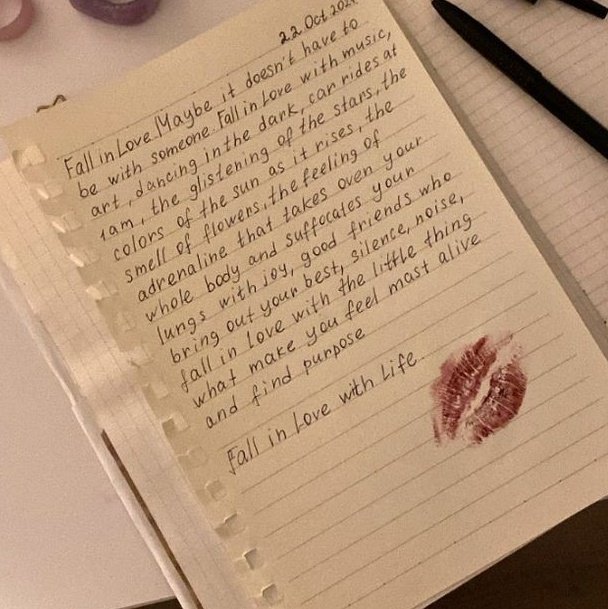 22 Oct
Fall in Love. Maybe it doesn't have to
be with someone. Fall in Love with music,
art, dancing in the dark, car rides at
1am, the glistening of the stars, the
colors of the sun as it rises, the
smell of flowers, the feeling of
adrenaline that takes oven your
whole body and suffocates your
lungs with joy, good friends who
bring out your best, silence, noise,
fall in Love with the little thing
what make you feel mast alive
and find purpose
Fall in Love with Life